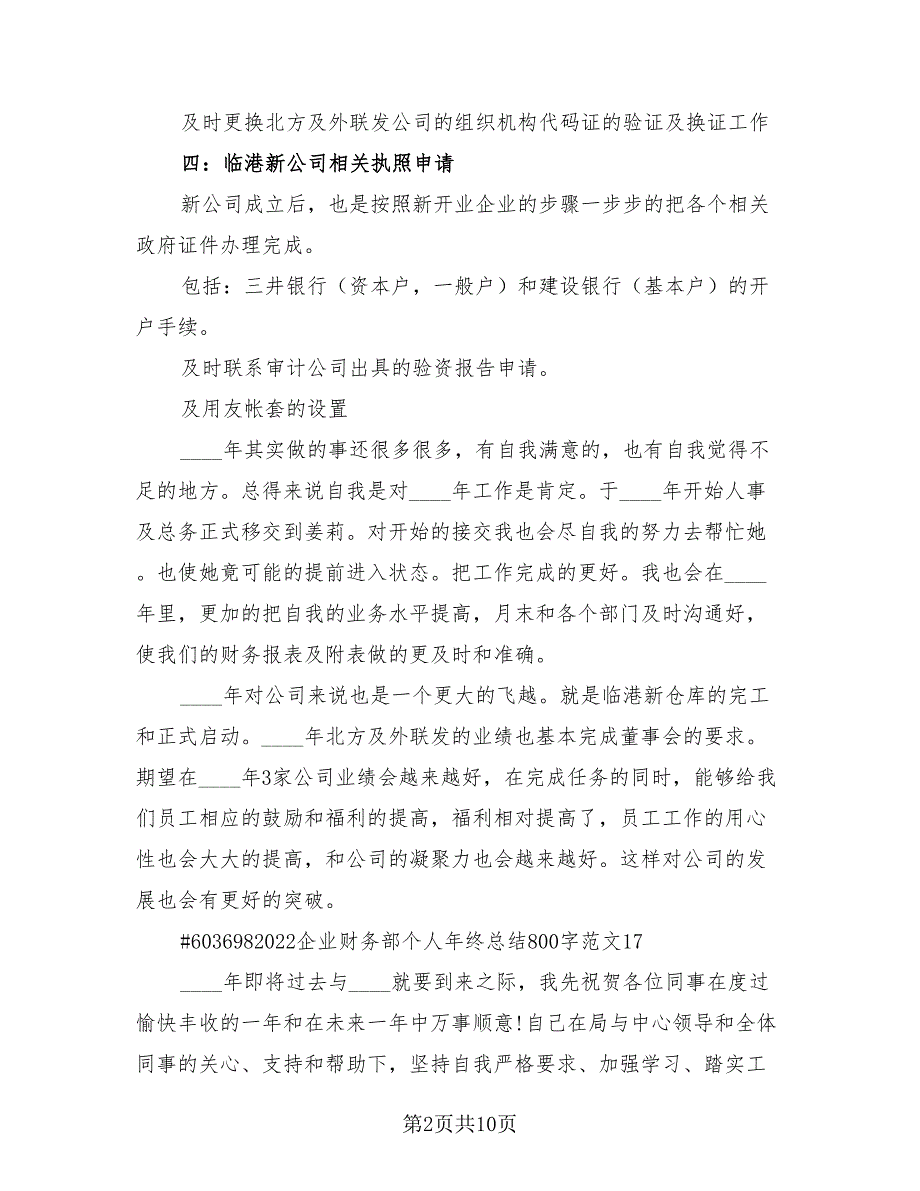 及时更换北方及外联发公司的组织机构代码证的验证及换证工作
四：临港新公司相关执照申请
新公司成立后，也是按照新开业企业的步骤一步步的把各个相关
政府证件办理完成。
包括：三井银行（资本户，一般户）和建设银行（基本户）的开
户手续。
及时联系审计公司出具的验资报告申请。
及用友帐套的设置
____年其实做的事还很多很多，有自我满意的，也有自我觉得不
足的地方。总得来说自我是对____年工作是肯定。于____年开始人事
及总务正式移交到姜莉。对开始的接交我也会尽自我的努力去帮忙她
。也使她竟可能的提前进入状态。把工作完成的更好。我也会在____
年里，更加的把自我的业务水平提高，月末和各个部门及时沟通好，
使我们的财务报表及附表做的更及时和准确。
____年对公司来说也是一个更大的飞越。就是临港新仓库的完工
和正式启动。____年北方及外联发的业绩也基本完成董事会的要求。
期望在____年3家公司业绩会越来越好，在完成任务的同时，能够给我
们员工相应的鼓励和福利的提高，福利相对提高了，员工工作的用心
性也会大大的提高，和公司的凝聚力也会越来越好。这样对公司的发
展也会有更好的突破。
#6036982022企业财务部个人年终总结800字范文17
____年即将过去与____就要到来之际，我先祝贺各位同事在度过
愉快丰收的一年和在未来一年中万事顺意!自己在局与中心领导和全体
同事的关心、支持和帮助下，坚持自我严格要求、加强学习、踏实工
第2页共10页